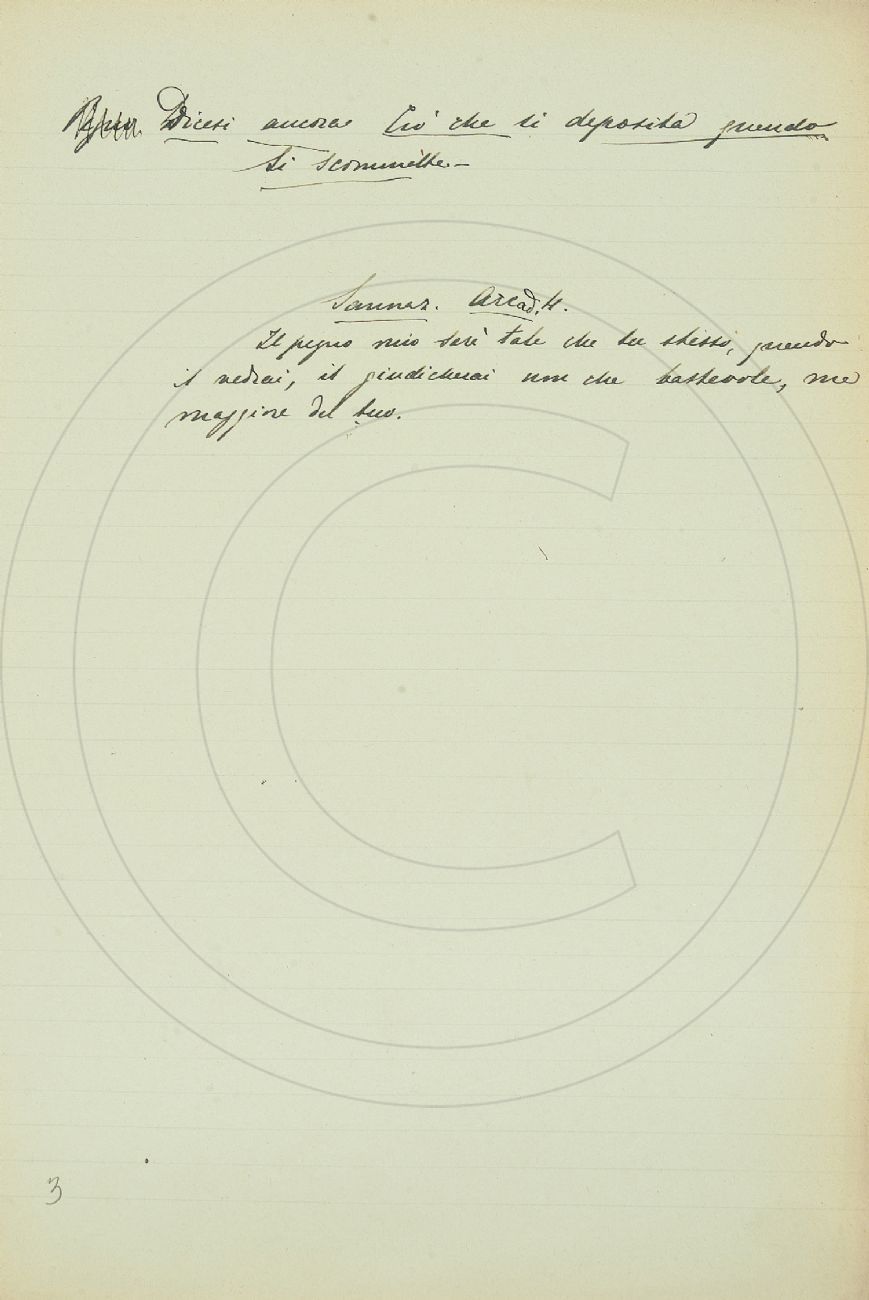 Dicesi ancora Ciò che si deposita quando
si scommette. –
Sannaz. Arcad. 4.
Il pegno mio sarà tale che tu stesso, quando
il vedrai, il giudicherai non che bastevole, ma
maggiore del tuo.
3